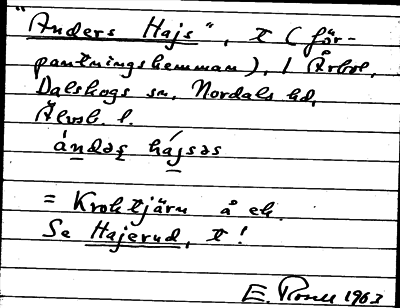 "Anders Hajs", t (för-
pantningshemman), i Årbol,
Dalskogs sn, Nordals hd,
Älvsb. l.
ándəʂ hájsəs
= Kroktjärn å ek.
Se Hajerud, t!
E. 1963